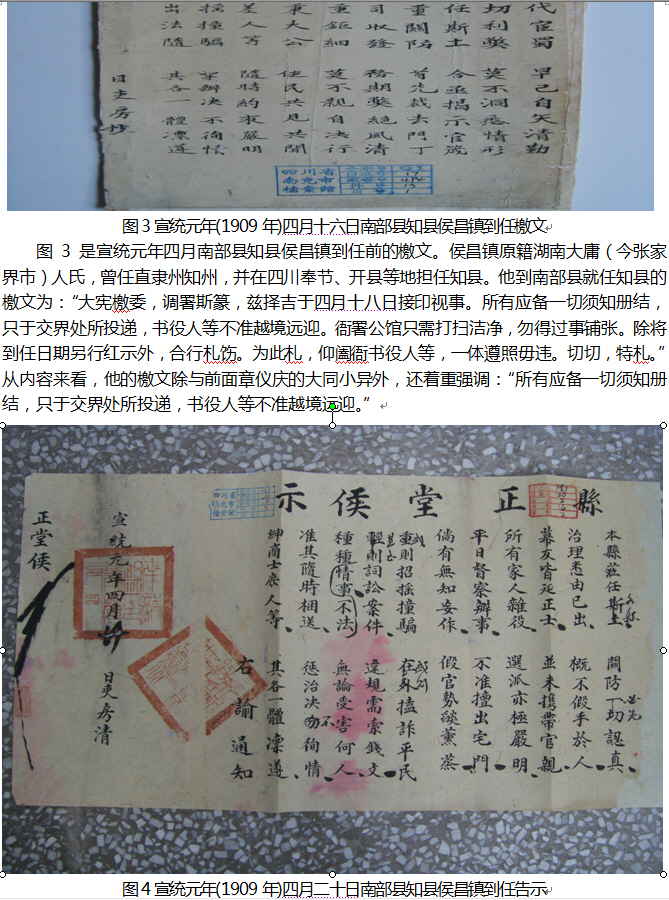 代宦蜀 早已自矢清勤
切利弊 莫不洞悉情形
任斯土 合亟揭示官箴
重關防 首先裁去門丁
司收發 務期弊絕風清
鉅細 莫不親自决行
秉大公 使民共見共聞
差人等 隨時約束嚴明
搖撞騙 拏辦决不徇情
出法隨 其各一體凜遵
日吏房抄
四川省
南充市
檔案館
图3宣统元年(1909年)四月十六日南部县知县侯昌镇到任檄文
图 3 是宣统元年四月南部县知县侯昌镇到任前的檄文。侯昌镇原籍湖南大庸（今张家
界市）人氏，曾任直隶州知州，并在四川奉节、开县等地担任知县。他到南部县就任知县的
檄文为：“大宪檄委，调署斯篆，兹择吉于四月十八日接印视事。所有应备一切须知册结，
只于交界处所投递，书役人等不准越境远迎。衙署公馆只需打扫洁净，勿得过事铺张。除将
到任日期另行红示外，合行札饬。为此札，仰阖衙书役人等，一体遵照毋违。切切，特札。”
从内容来看，他的檄文除与前面章仪庆的大同小异外，还着重强调：“所有应备一切须知册
结，只于交界处所投递，书役人等不准越境远迎。”
縣正堂侯示
本縣莅任斯土 關防一切認真
治理悉由己出 概不假手於人
幕友皆延正士 並未携帶官親
所有家人雜役 選派亦極嚴明
平日督察辦事 不准擅出宅門
倘有無知妄作 假官勢燄薰蒸
重則招搖撞騙 在外搕詐平民
輕則詞訟案件 違規需索錢文
種種情事不法 無論受害何人
准其隨時梱送 懲治决不徇情
紳商士庶人等 其各一體凜遵
右諭通知
宣統元年四月 日吏房清
正堂侯
四川省
图4宣统元年(1909年)四月二十日南部县知县侯昌镇到任告示